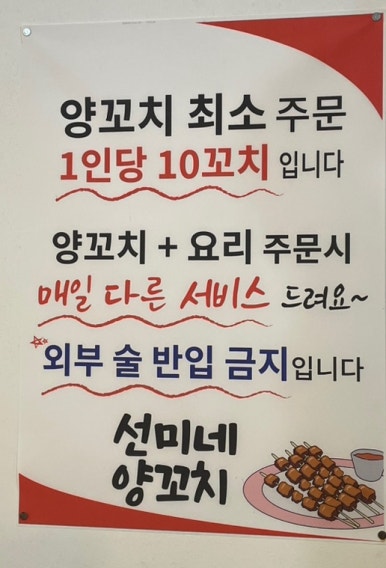 양꼬치 최소 주문
1인당 10꼬치 입니다
양꼬치 + 요리 주문시
매일 다른 서비스 드려요~
외부 술 반입 금지입니다
선미네
양꼬치